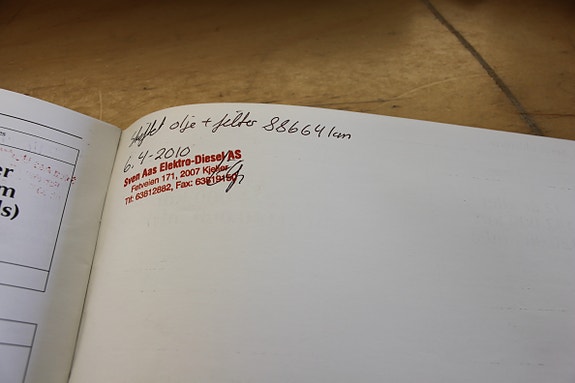 er
m
ls)
skiftet olje + filter 88664 km
6.4-2010
Sven Aas Elektro-Diesel AS
Fetveien 171, 2007 Kjeller
Tlf: 63812882, Fax: